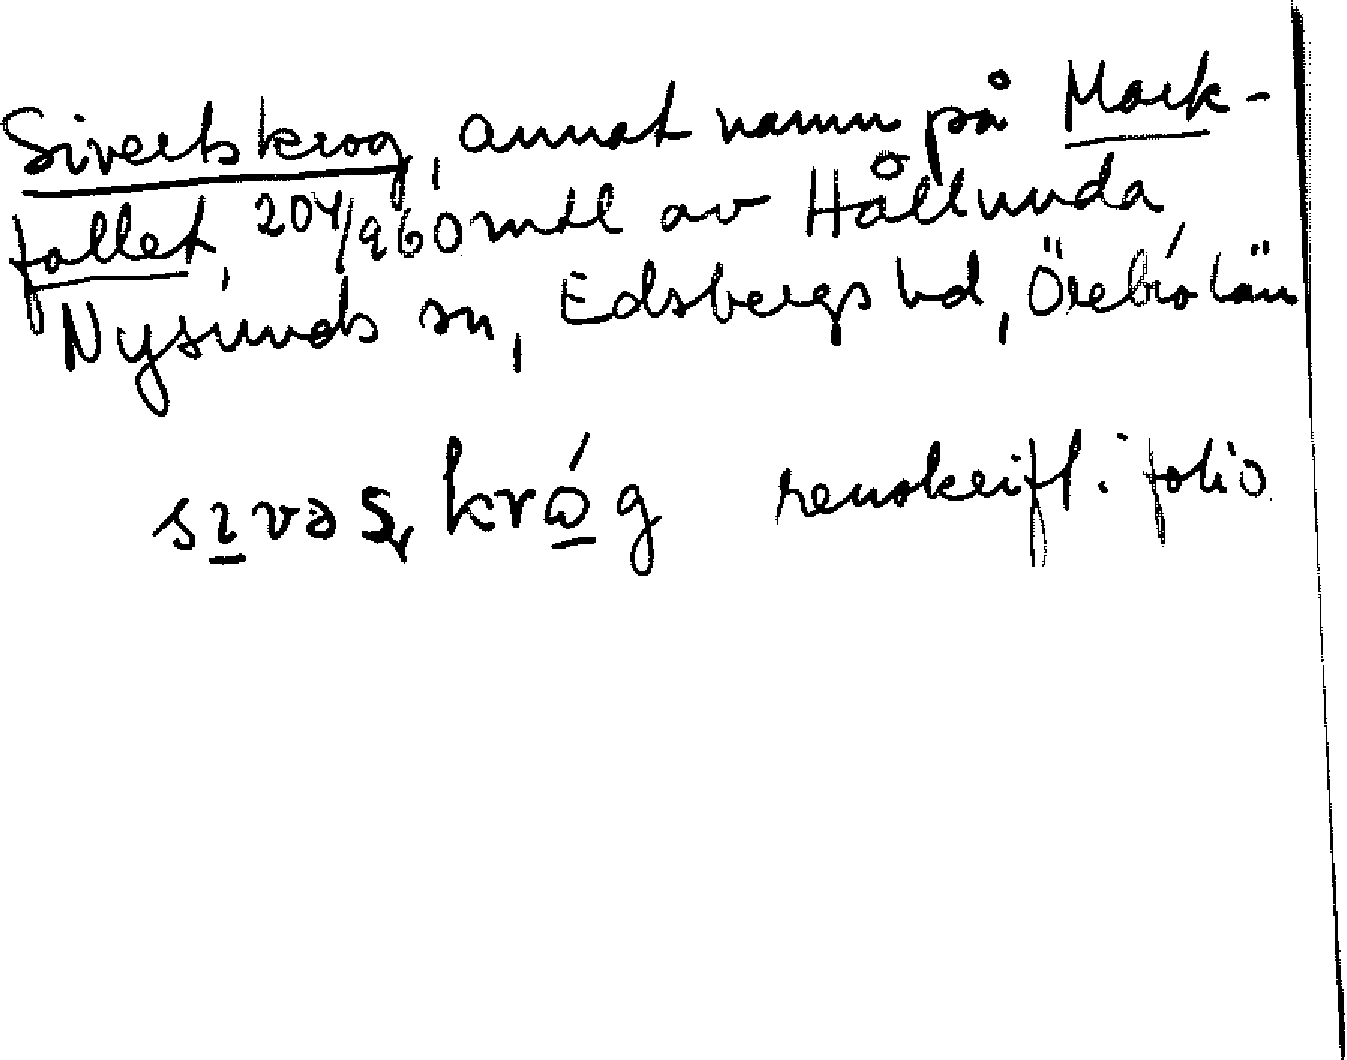 Sivertskrog, annat namn på Mark-
fallet, 204/960 mtl av Hållunda,
Nysunds sn, Edsbergs hd, Örebro län
renskrift i folio